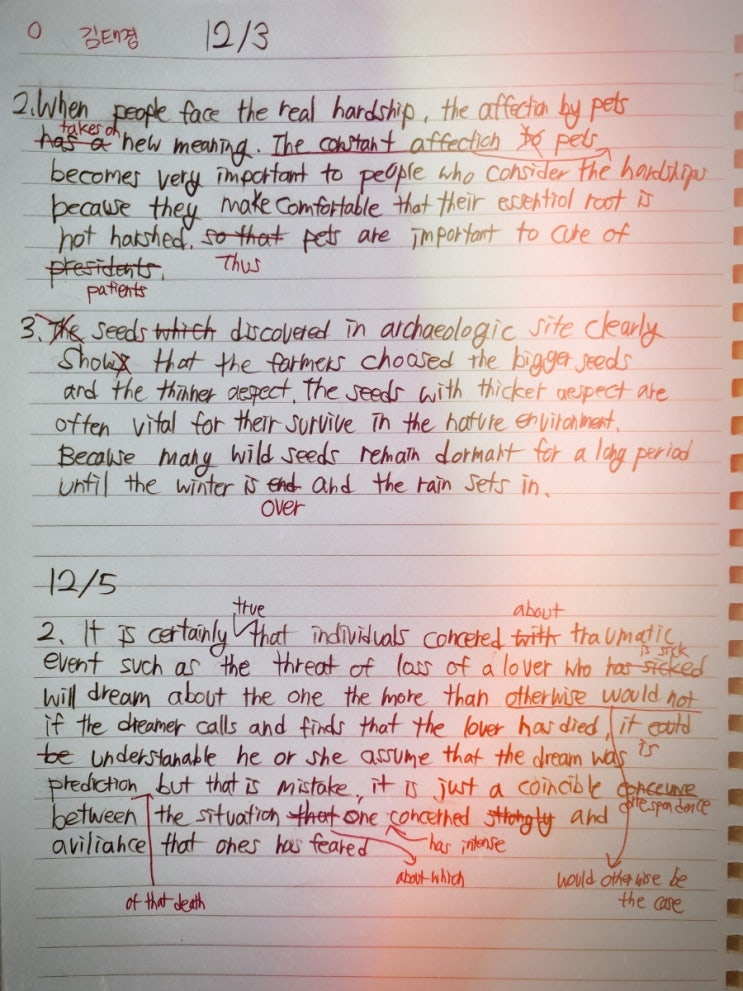 O 김태경 12/3
2. When people face the real hardship, the affection by pets
takes on
has a new meaning. The constant affection to pets
becomes very important to people who consider the hardships
because they make comfortable that their essential root is
not harshed. so that pets are important to cure of
Thus
presidents.
patients
3. The seeds which discovered in archaeologic site clearly
shows that the farmers choosed the bigger seeds
and the thinner aespect. The seeds with thicker aespect are
often vital for their survive in the nature environment.
Because many wild seeds remain dormant for a long period
until the winter is end and the rain sets in.
over
12/5
true about
2. It is certainly that individuals concered with traumatic
is sick
event such as the threat of loss of a lover who has sicked
will dream about the one the more than otherwise would not
if the dreamer calls and finds that the lover has died, it could
be understanable he or she assume that the dream was is
prediction but that is mistake, it is just a coincible
between the situation that one concerned strongly and
aviliance that ones has feared
has intense
about which would otherwise be
of that death the case